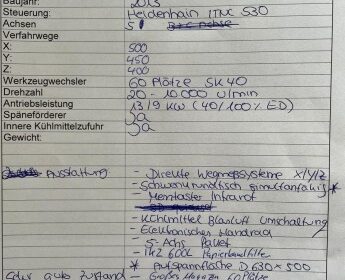 Baujahr: 2013
Steuerung: Heidenhain iTNC 530
Achsen 5
Verfahrwege
X: 500
Y: 450
Z: 400
Werkzeugwechsler 60 Plätze SK40
Drehzahl 20 - 10000 U/min
Antriebsleistung 13/9 KW (40/100% ED)
Späneförderer ja
Innere Kühlmittelzufuhr ja
Gewicht:
Ausstattung - Direkte Wegmeßsysteme X/Y/Z
- Schwenkrundtisch simultanfähig *
- Messtaster Infrarot
- Kühlmittel Blasluft Umschaltung
- Elektronisches Handrad
- 5-Achs Paket
- IKZ 600L Papierbandfilter
* Aufspannfläche D 630 x 500
Sehr gute Zustand - Großes Magazin 60 Plätze